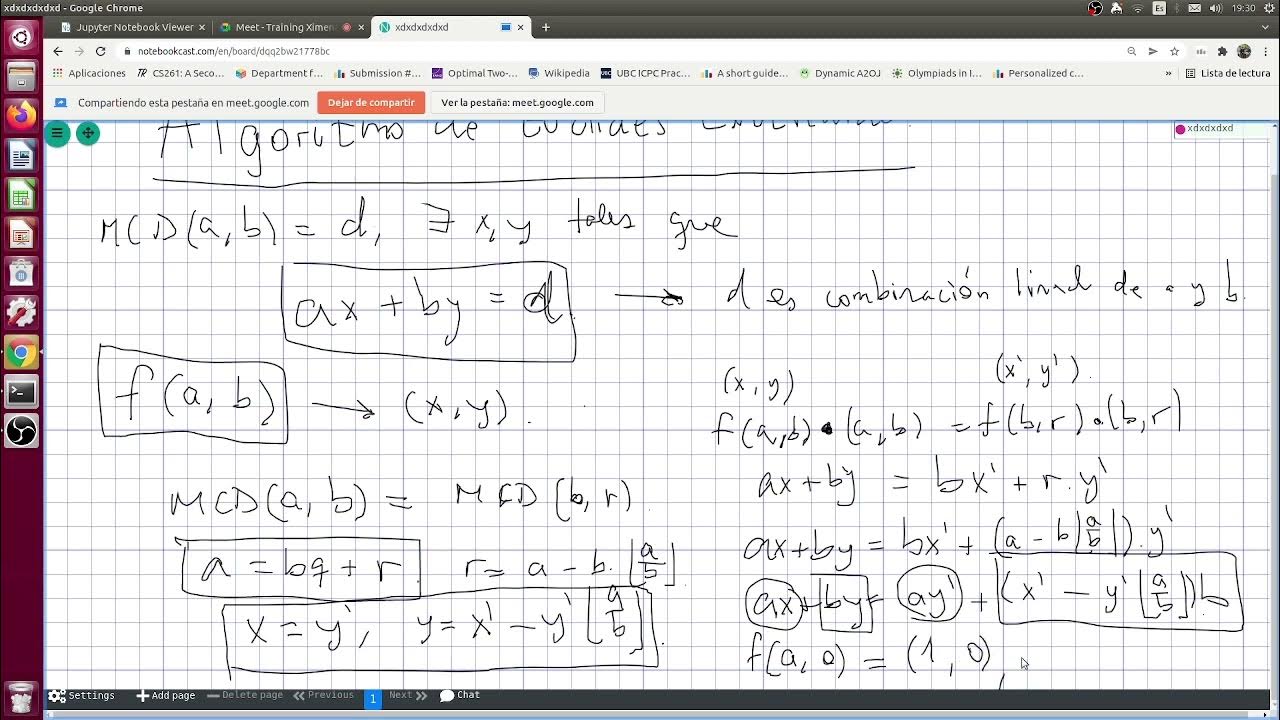 xdxdxdxdxd - Google Chrome
Es 19:30
Jupyter Notebook Viewer
Meet - Training Xime
xdxdxdxdxd
notebookcast.com/en/board/dqq2bw21778bc
Aplicaciones
Department f...
Submission #...
Optimal Two-...
Wikipedia
UBC ICPC Prac...
A short guide...
Dynamic A2OJ
Olympiads in I...
Personalized c...
»
Lista de lectura
Compartiendo esta pestaña en meet.google.com
Dejar de compartir
Ver la pestaña: meet.google.com
xdxdxdxd
Algoritmo de Euclides
MCD(a, b) = d, ∃ x, y tales que
ax + by = d → d es combinación lineal de a y b.
f(a, b) → (x, y).
MCD(a, b) = MCD(b, r)
a = bq + r r = a - b.⌊a/b⌋
x = y', y = x' - y'⌊a/b⌋.
(x, y) (x', y').
f(a, b) • (a, b) = f(b, r) • (b, r)
ax + by = bx' + r.y'
ax + by = bx' + (a - b⌊a/b⌋).y'
ax + by = ay' + (x' - y'⌊a/b⌋)b
f(a, 0) = (1, 0)
Settings
Add page
Delete page
Previous
1
Next
Chat